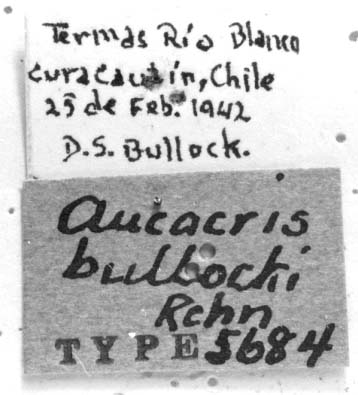 Termas Río Blanco
Curacautín, Chile
25 de Feb. 1942
D.S. Bullock.
Aucacris
bullocki
Rehn
TYPE 5684